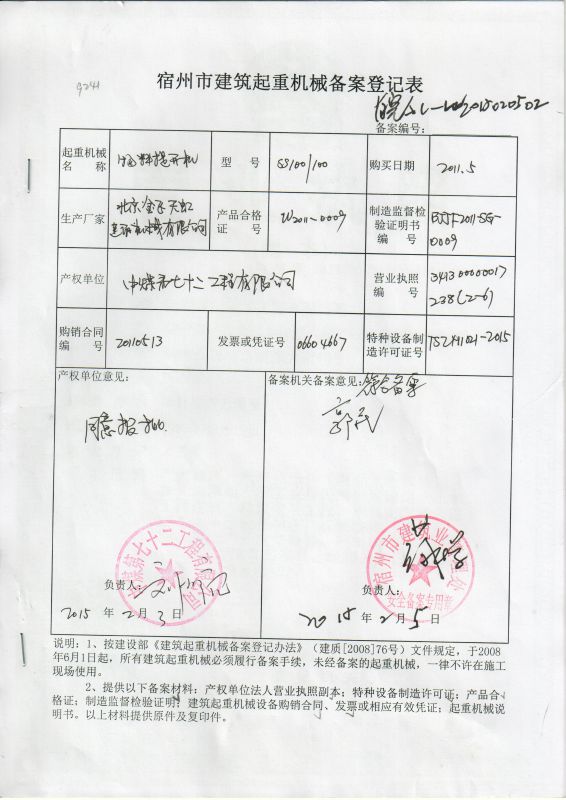 9241
宿州市建筑起重机械备案登记表
备案编号：
起重机械
名 称
物料提升机
型 号
SS100/100
购买日期
2011.5
生产厂家
北京金禾天虹
建筑机械有限公司
产品合格
证 号
W2011-0009
制造监督检
验证明书
编 号
BJJF2011-SG-
0009
产权单位
中煤第七十二工程有限公司
营业执照
编 号
34130000017
238(2-6)
购销合同
编 号
20110513
发票或凭证号
06604667
特种设备制
造许可证号
TS2411021-2015
产权单位意见：
同意报
备案机关备案意见：符合备案
中煤第七十二工程有限公司
负责人：
2015 年 2 月 3 日
宿州市建筑业管理处
安全备案专用章
负责人：
2015 年 2 月 5 日
说明：1、按建设部《建筑起重机械备案登记办法》（建质[2008]76号）文件规定，于2008
年6月1日起，所有建筑起重机械必须履行备案手续，未经备案的起重机械，一律不许在施工
现场使用。
2、提供以下备案材料：产权单位法人营业执照副本；特种设备制造许可证；产品合
格证；制造监督检验证明；建筑起重机械设备购销合同、发票或相应有效凭证；起重机械说
明书。以上材料提供原件及复印件。